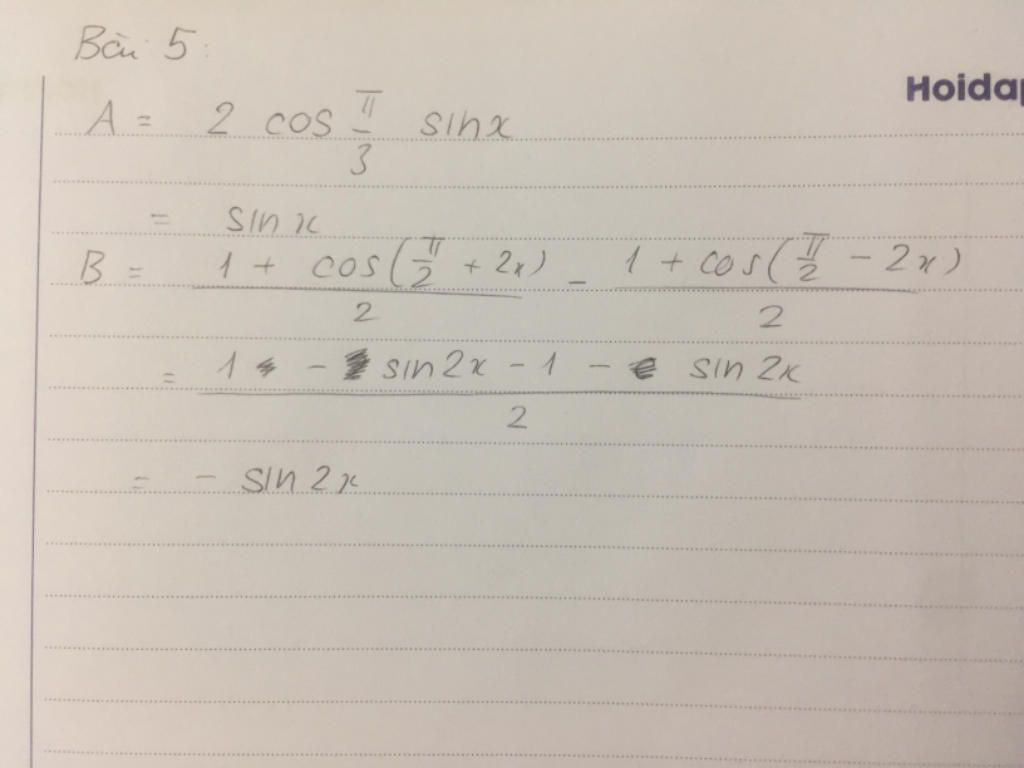 Bài 5:
Hoidap
A = 2 cos π/3 sinx
= sin x
B = (1 + cos(π/2 + 2x))/2 - (1 + cos(π/2 - 2x))/2
= (1 - sin2x - 1 - sin 2x)/2
= - sin 2x